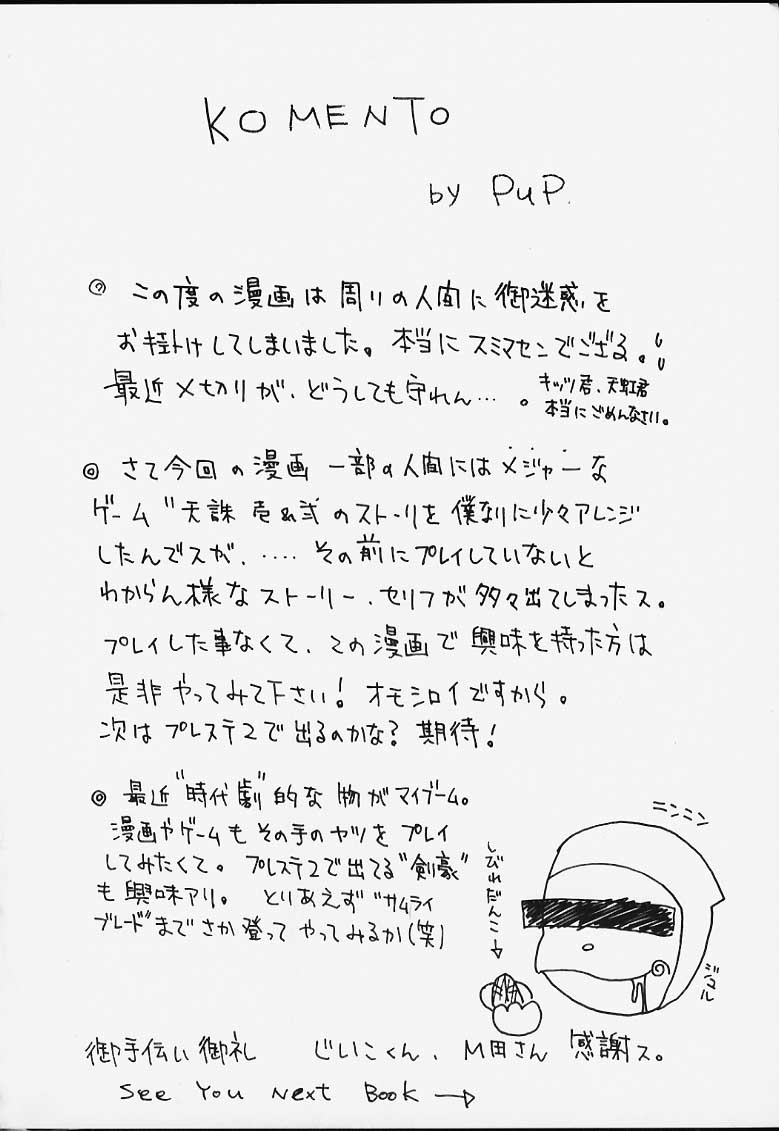 KOMENTO
by PuP.
◎ この度の漫画は周りの人間に御迷惑を
お掛けしてしまいました。本当にスミマセンでござる。
最近〆切りが、どうしても守れん…。
キッツ君、天虹君
本当にごめんなさい。
◎ さて今回の漫画 一部の人間にはメジャーな
ゲーム"天誅 壱&弐のストーリを僕なりに少々アレンジ
したんでスが、‥‥その前にプレイしていないと
わからん様なストーリー、セリフが多々出てしまったス。
プレイした事なくて、この漫画で興味を持った方は
是非やってみて下さい！オモシロイですから。
次はプレステ2で出るのかな？期待！
◎ 最近"時代劇"的な物がマイブーム。
漫画やゲームもその手のヤツをプレイ
してみたくて。プレステ2で出てる"剣豪"
も興味アリ。とりあえず"サムライ
ブレード"までさか登ってやってみるか(笑)
ニンニン
しびれだんご→
ジュル
御手伝い御礼 じいこくん、M田さん 感謝ス。
See You Next Book →